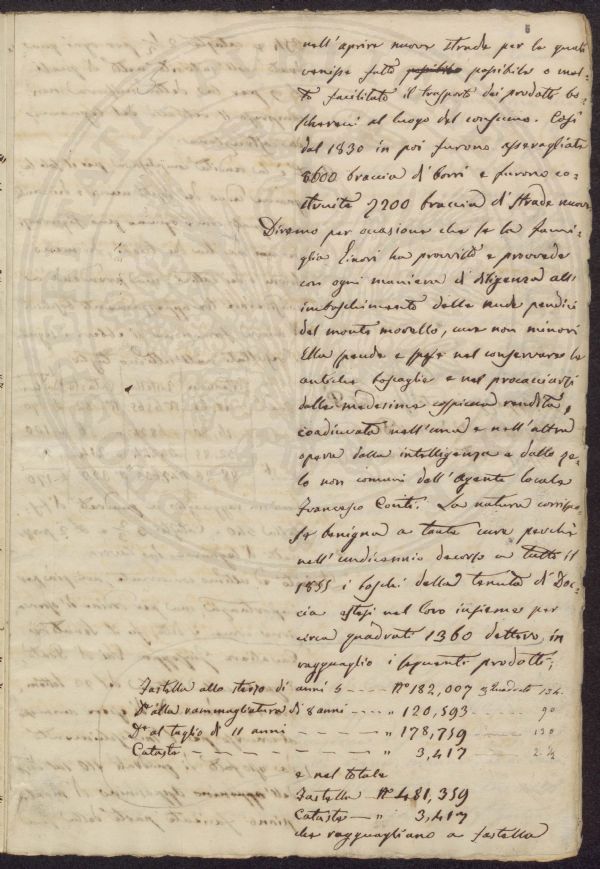 nell'aprire nuove strade per le quali
venisse fatto possibile possibile o mol-
to facilitato il trasporto dei prodotti bo-
scherecci al luogo del consumo. Così
dal 1830 in poi furono asserragliate
8600 braccia di borri e furono co-
struite 7200 braccia di strade nuove
Diremo per occasione che se la fami-
glia Ginori ha provvisto e provvede
con ogni maniera di diligenza all'
imboschimento delle nude pendici
del monte morello, cure non minori
Ella spende e spese nel conservare le
antiche boscaglie e nel procacciarsi
dalle medesime cospicua rendita,
coadiuvata nell'una e nell'altra
opera dalla intelligenza e dallo ze-
lo non comuni dell'Agente locale
Francesco Conti. La natura corrispo-
se benigna a tante cure perchè
nell'undicennio decorso a tutto il
1855 i boschi della tenuta di Doc-
cia estesi nel loro insieme per
circa quadrati 1360 dettero, in
ragguaglio i seguenti prodotti;
Fastella allo sterzo di anni 5 - - - N° 182,007 quadrati 134
D.e alla rammagliatura di 8 anni - - - " 120,593 - - - 90
D.e al taglio di 11 anni - - - - " 178,759 - - - 130
Cataste - - - - - - - - " 3,417 - - - 2 ½
e nel totale
Fastella - N° 481,359
Cataste - " 3,417
che ragguagliano a fastella